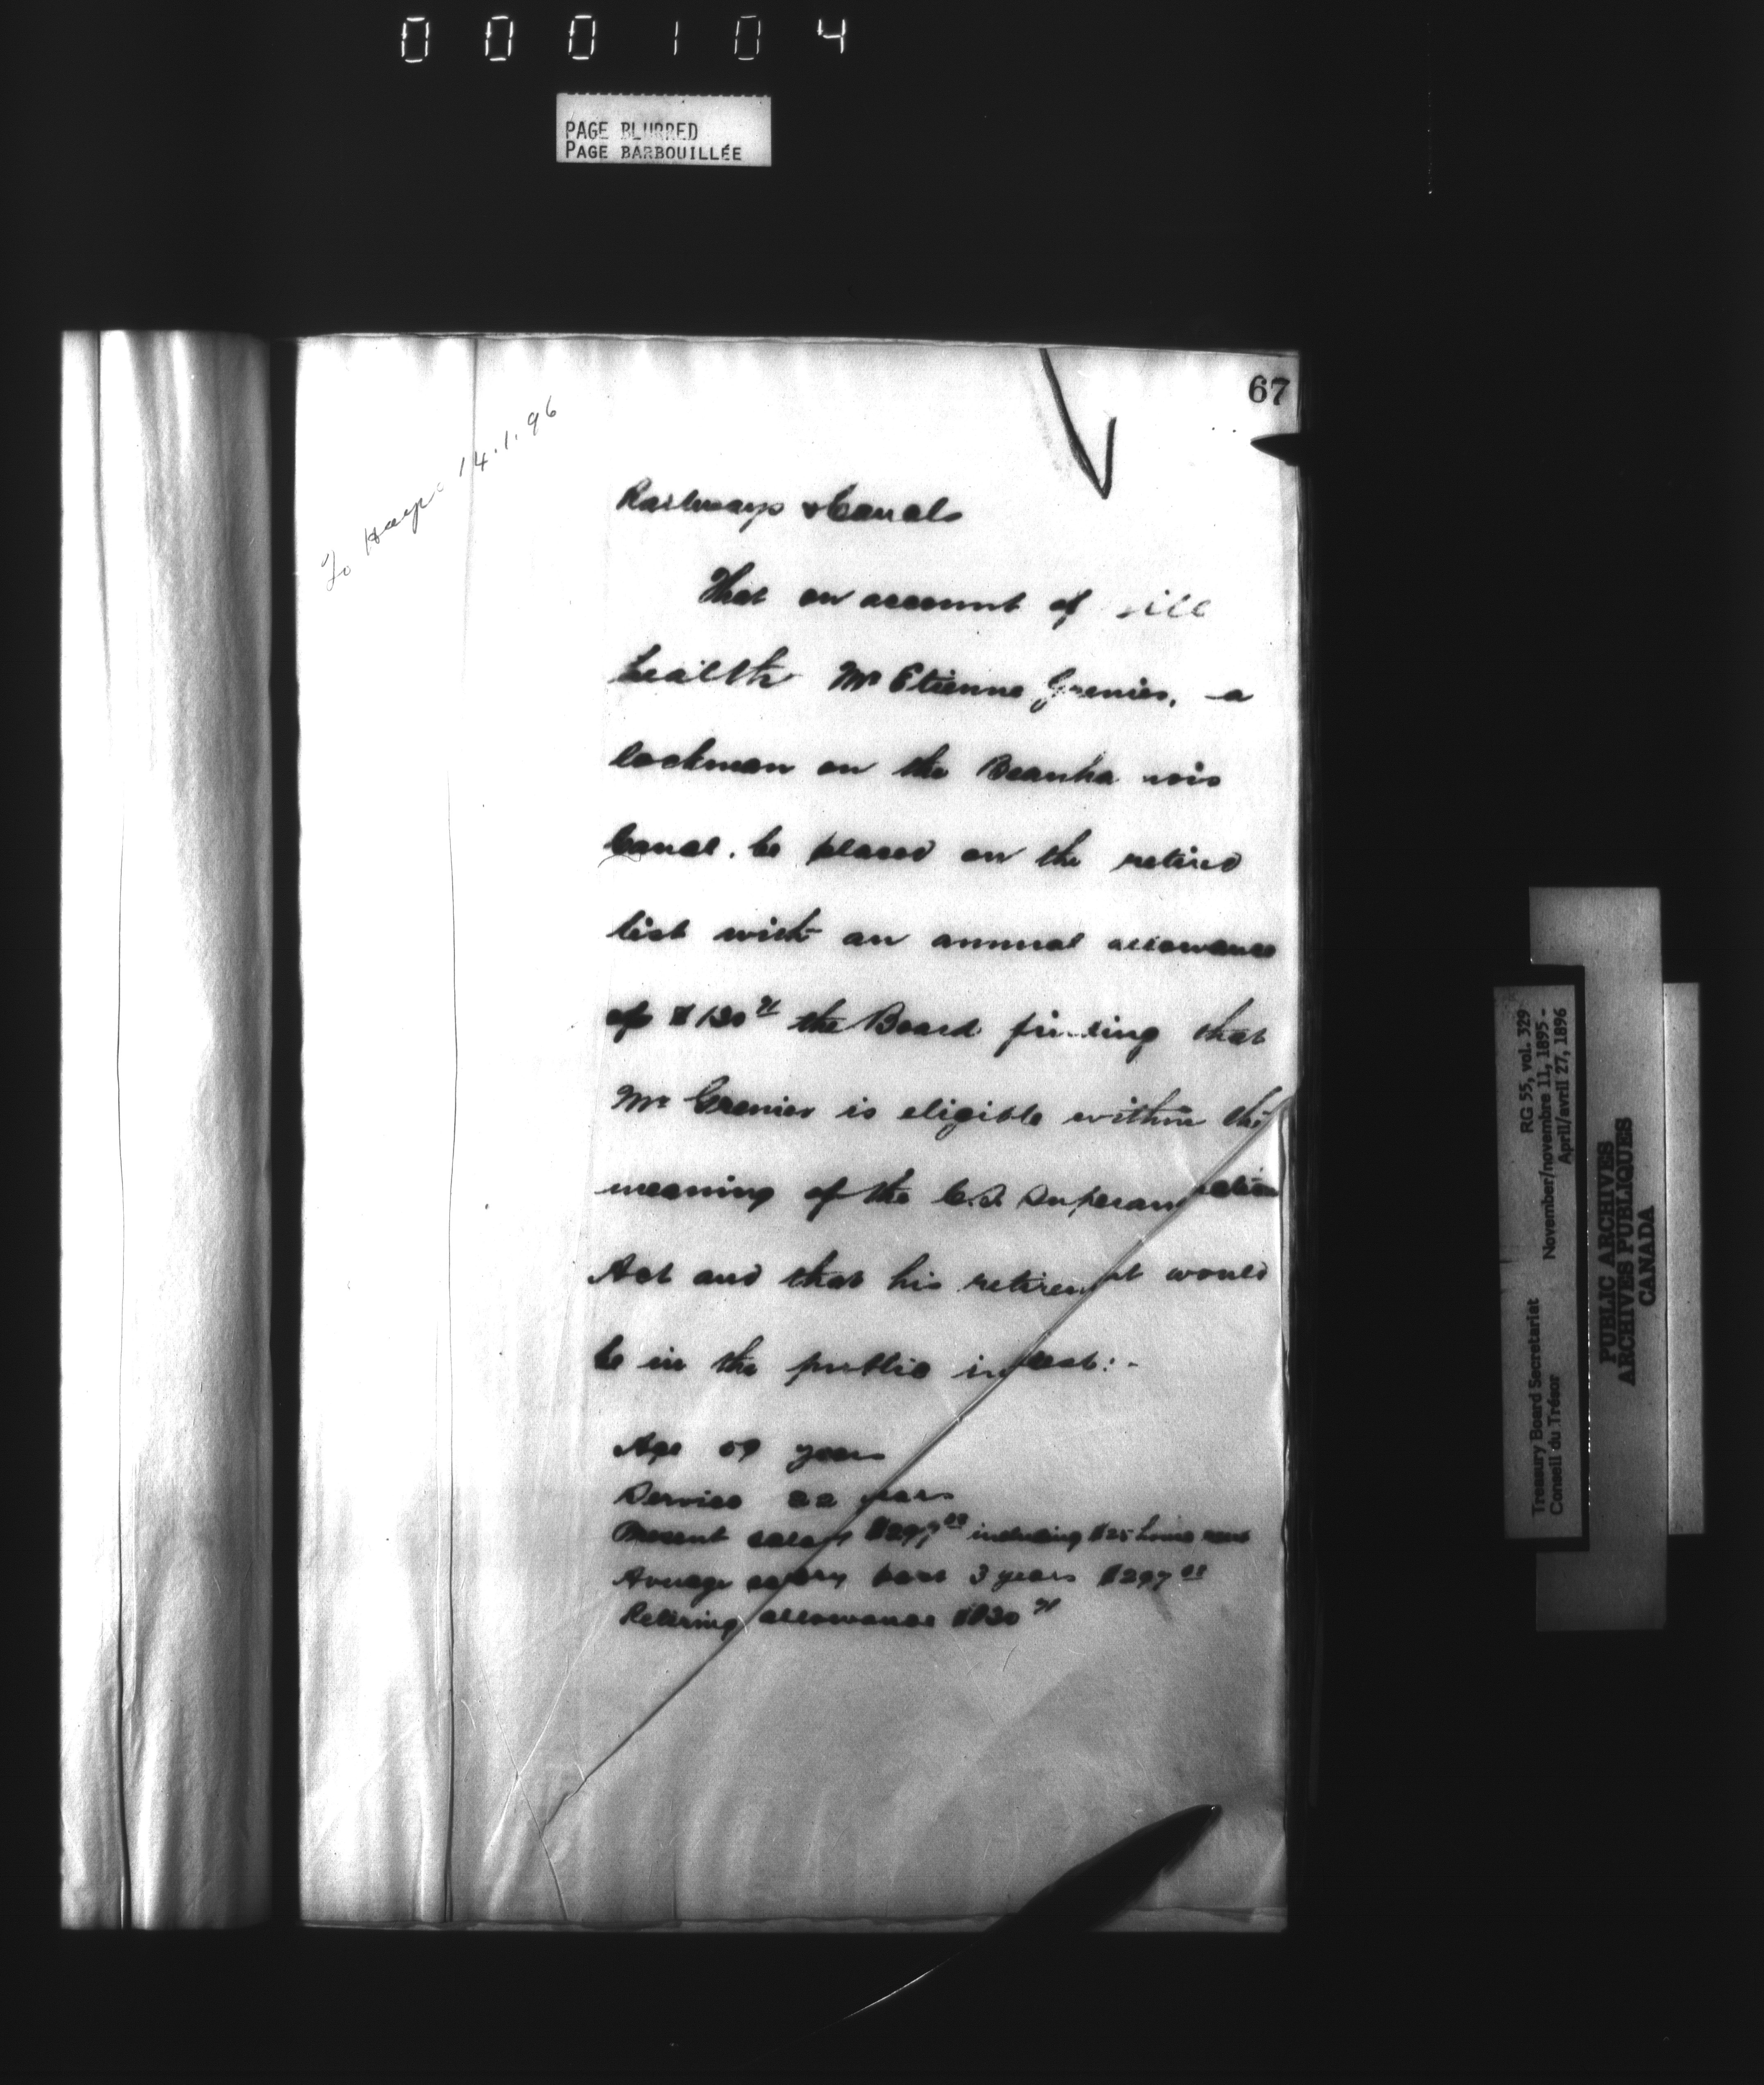 000104
PAGE BLURRED
PAGE BARBOUILLÉE
67
To 14.1.96
Railways & Canals
That on account of ill
health Mr Etienne Grenier, a
lockman on the Beauharnois
Canal, be placed on the retired
list with an annual allowance
of $130 the Board finding that
Mr Grenier is eligible within the
meaning of the C.S. Superannuation
Act and that his retirement would
be in the public interest:-
Age years
Service 22 years
Present salary $297 00 including $25 house rent
Average salary past 3 years $297 00
Retiring allowance $130
Treasury Board Secretariat RG 55, vol. 329
Conseil du Trésor November/novembre 11, 1895 -
April/avril 27, 1896
PUBLIC ARCHIVES
ARCHIVES PUBLIQUES
CANADA